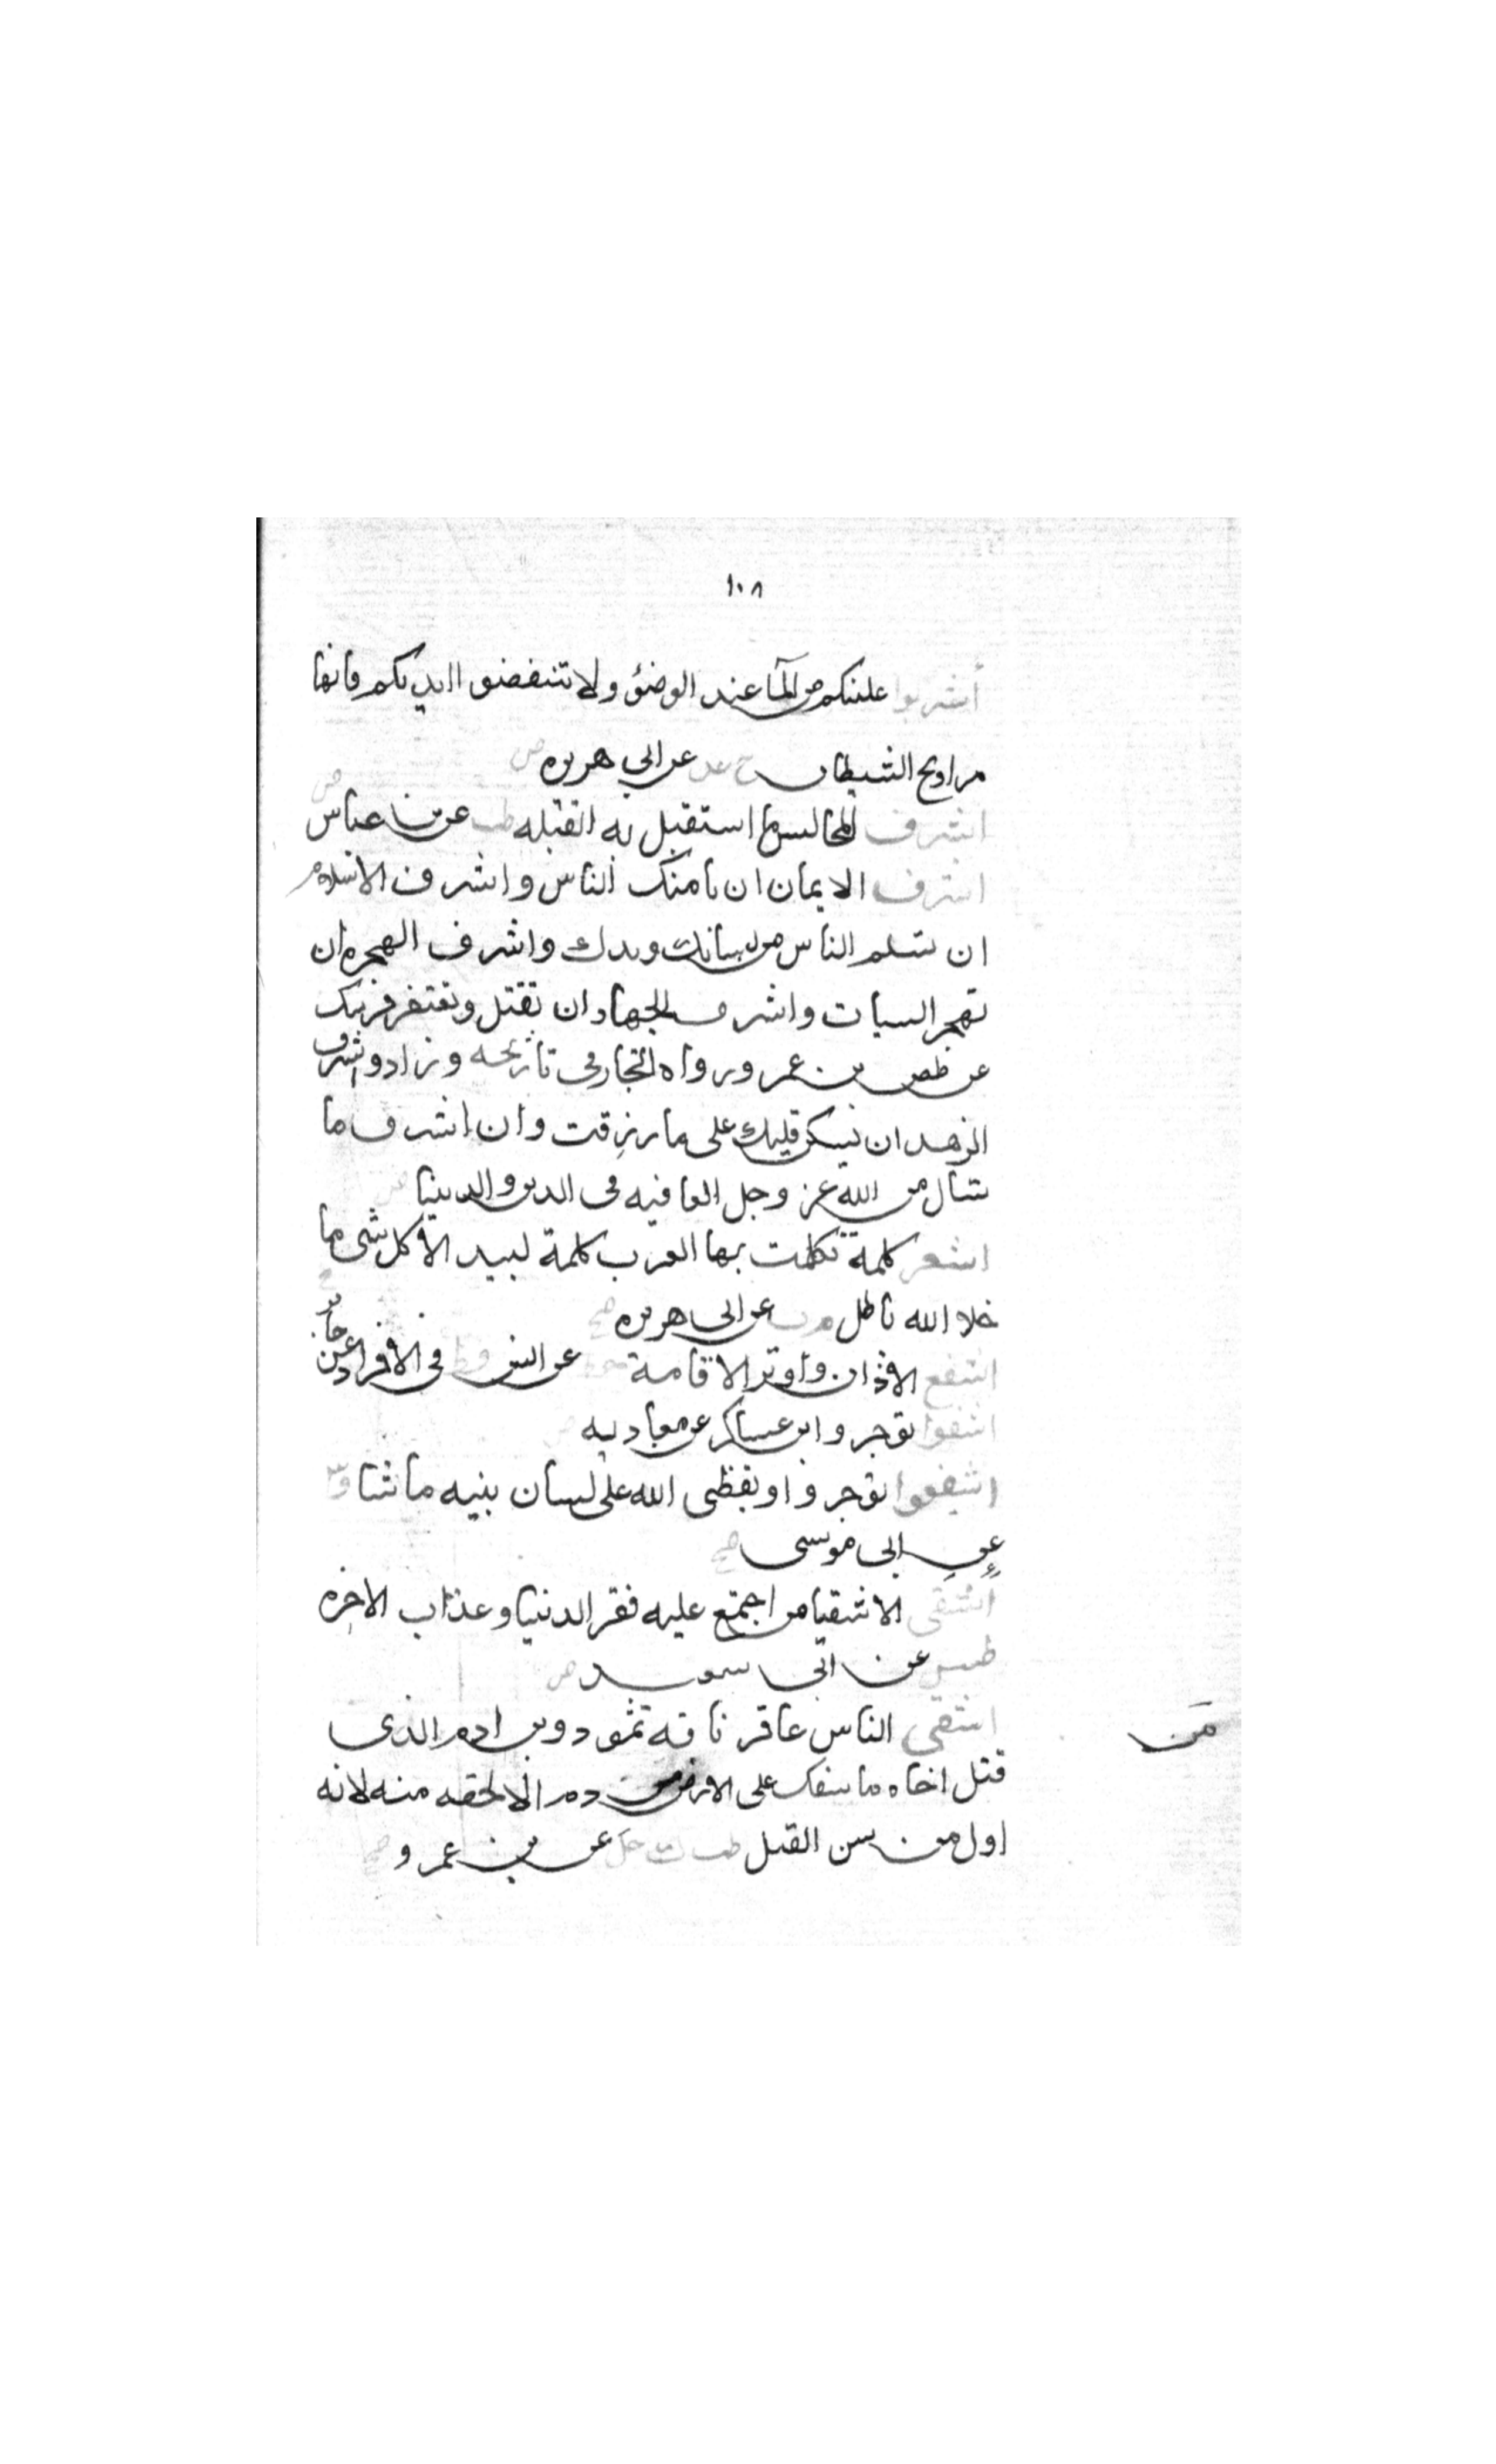 ١٠٨
أشربوا علينكم من المآ عند الوضؤ ولا تنفضوا ايديكم فانها
مراويح الشيطان ع عد عن ابي هريره ض
اشرف المجالس ما استقبل به القبله طب عن بن عباس ض
اشرف الايمان ان يامنك الناس واشرف الاسلام
ان يسلم الناس من لسانك ويدك واشرف الهجره ان
تهجر السيات واشرف الجهاد ان تقتل وتعقر فرسك
عن بن عمر ورواه النجار في تاريخه وزاد واشرف
الزهد ان يسكن قلبك على ما رزقت وان اشرف ما
تسال من الله عز وجل العافيه في الدين والدينا ض
اشعر كلمة تكلمت بها العرب كلمة لبيد الا كل شى ما
خلا الله باطل م ت عن ابى هريره صح
اشفع الاذان واوتر الاقامة عن انس قط في الافراد عن جابر
اشفعوا توجرو ابن عساكر عن معاويه ض
اشفعوا توجروا ويقضى الله على لسان نبيه ما شا
عن ابى موسى صح
أشقى الاشقيا من اجتمع عليه فقر الدنيا وعذاب الاخره
طس عن ابى سعيد ض
اشقى الناس عاقر ناقه ثمود وبن ادم الذى
من
قتل اخاه ما سفك على الارض من دم الا لحقه منه لانه
اول من سن القتل طب ك حل عن بن عمرو صح